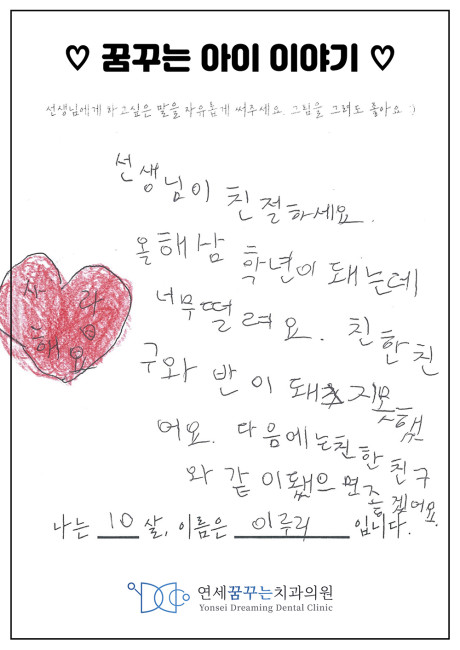 ♡ 꿈꾸는 아이 이야기 ♡
선생님에게 하고싶은 말을 자유롭게 써주세요. 그림을 그려도 좋아요 :)
선생님이 친절하세요.
올해삼 학년이 돼는데
너무떨려요. 친한친
구와 반이 돼지못했
어요. 다음에는친한친구
와 같이됐으면좋겠어요.
사랑
해요
나는 10 살, 이름은 이루리 입니다.
연세꿈꾸는치과의원
Yonsei Dreaming Dental Clinic